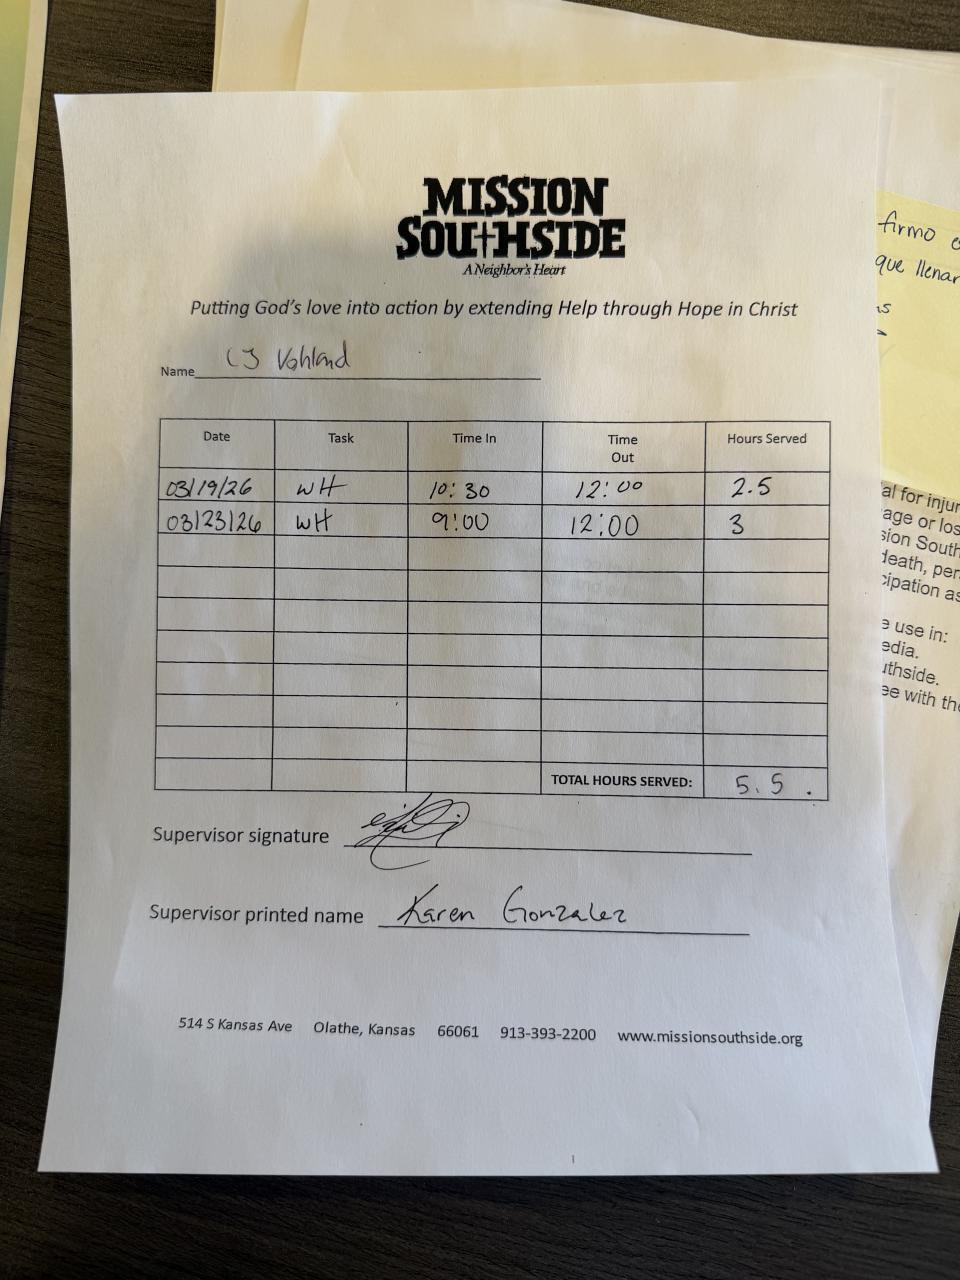 MISSION
SOUTHSIDE
A Neighbor's Heart
Putting God's love into action by extending Help through Hope in Christ
Name CJ Vohland
Date Task Time In Time Out Hours Served
03/19/26 WH 10:30 12:00 2.5
03/23/26 WH 9:00 12:00 3
TOTAL HOURS SERVED: 5.5.
Supervisor signature
Supervisor printed name Karen Gonzalez
514 S Kansas Ave Olathe, Kansas 66061 913-393-2200 www.missionsouthside.org
firmo
que llenar
al for injur
age or los
sion South
death, per
cipation as
e use in:
edia.
uthside.
ee with the